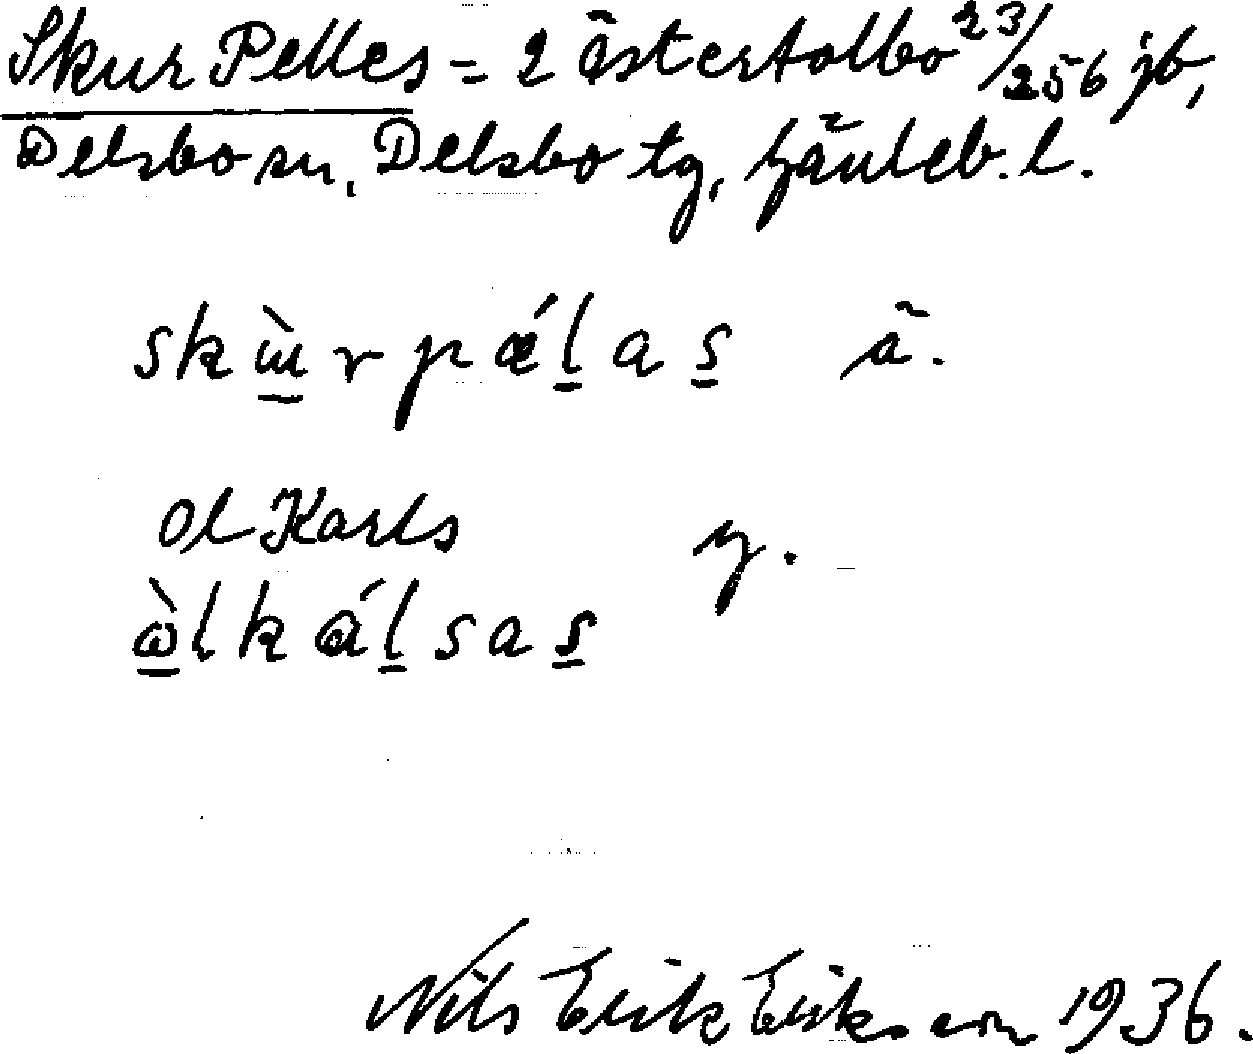 Skur Pelles = 2 Östertolbo 23/256 jb,
Delsbo sn, Delsbo tg, Gävleb. l.
skɯ̀rpǽlas ä.
Ol Karls y.
ɷ̀lkálsas
Nils Erik Eriksson 1936.